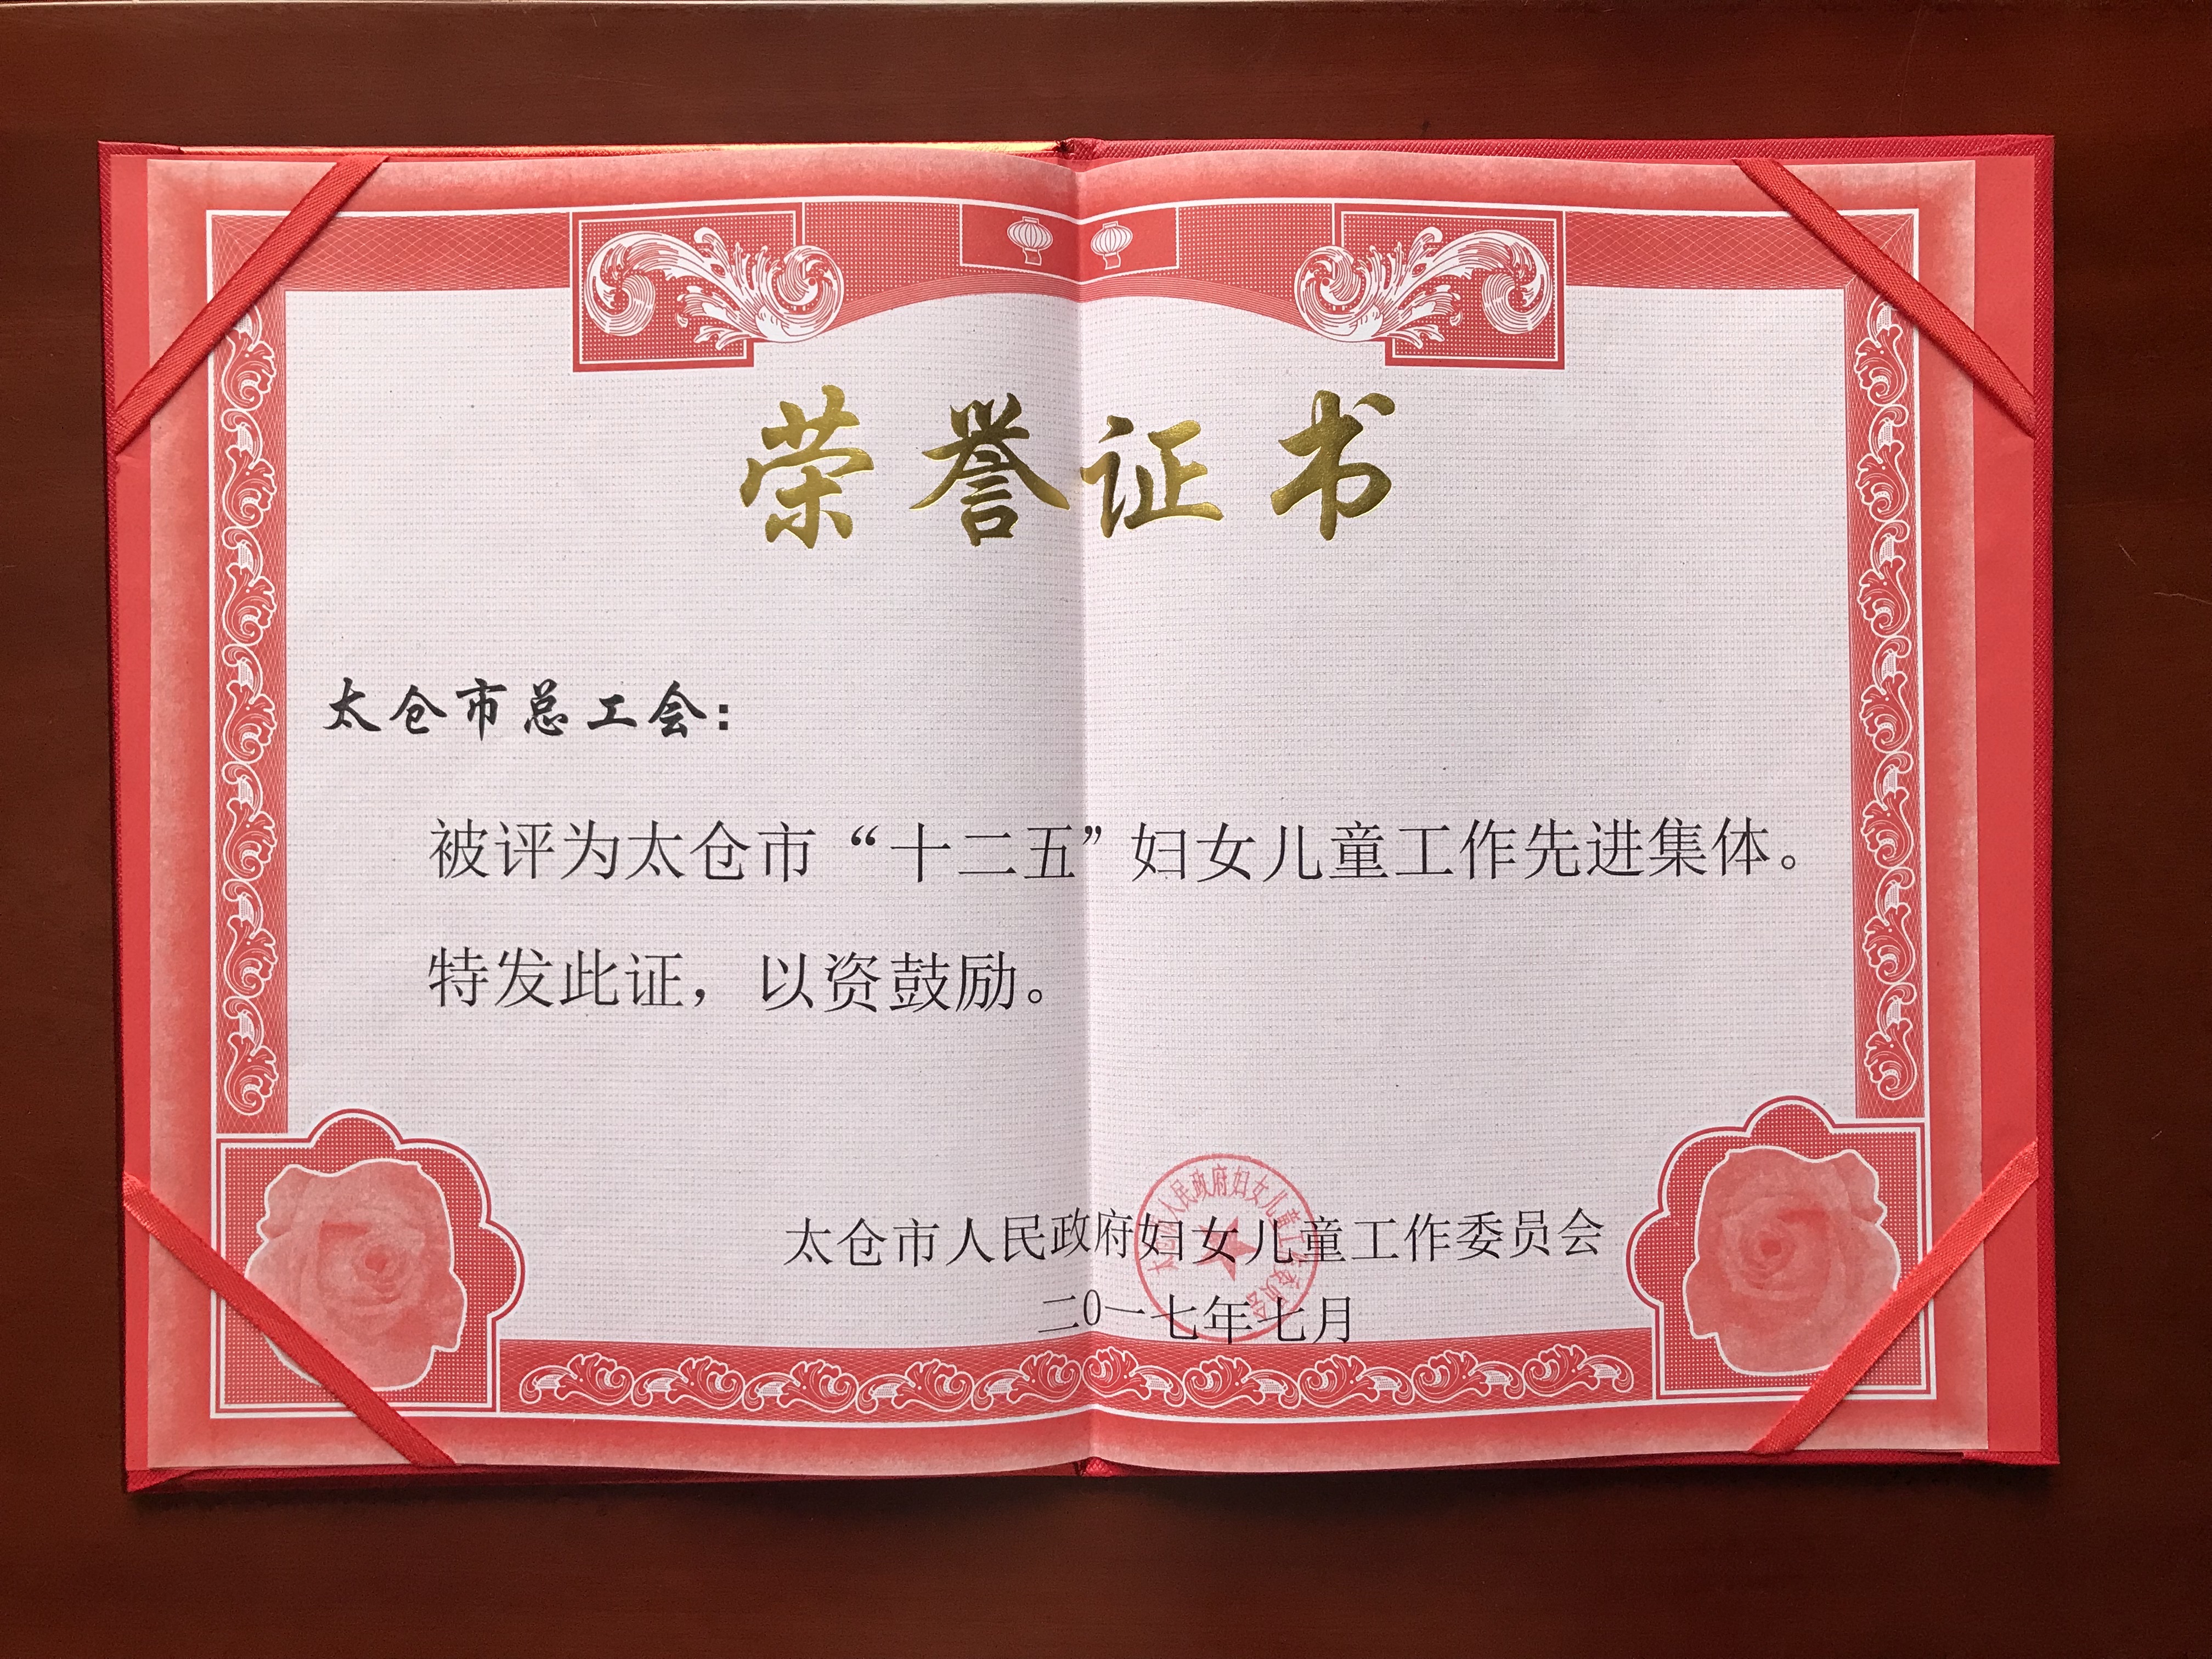 荣誉证书
太仓市总工会：
被评为太仓市“十二五”妇女儿童工作先进集体。
特发此证，以资鼓励。
太仓市人民政府妇女儿童工作委员会
太仓市人民政府妇女儿童工作委员会
二0一七年七月